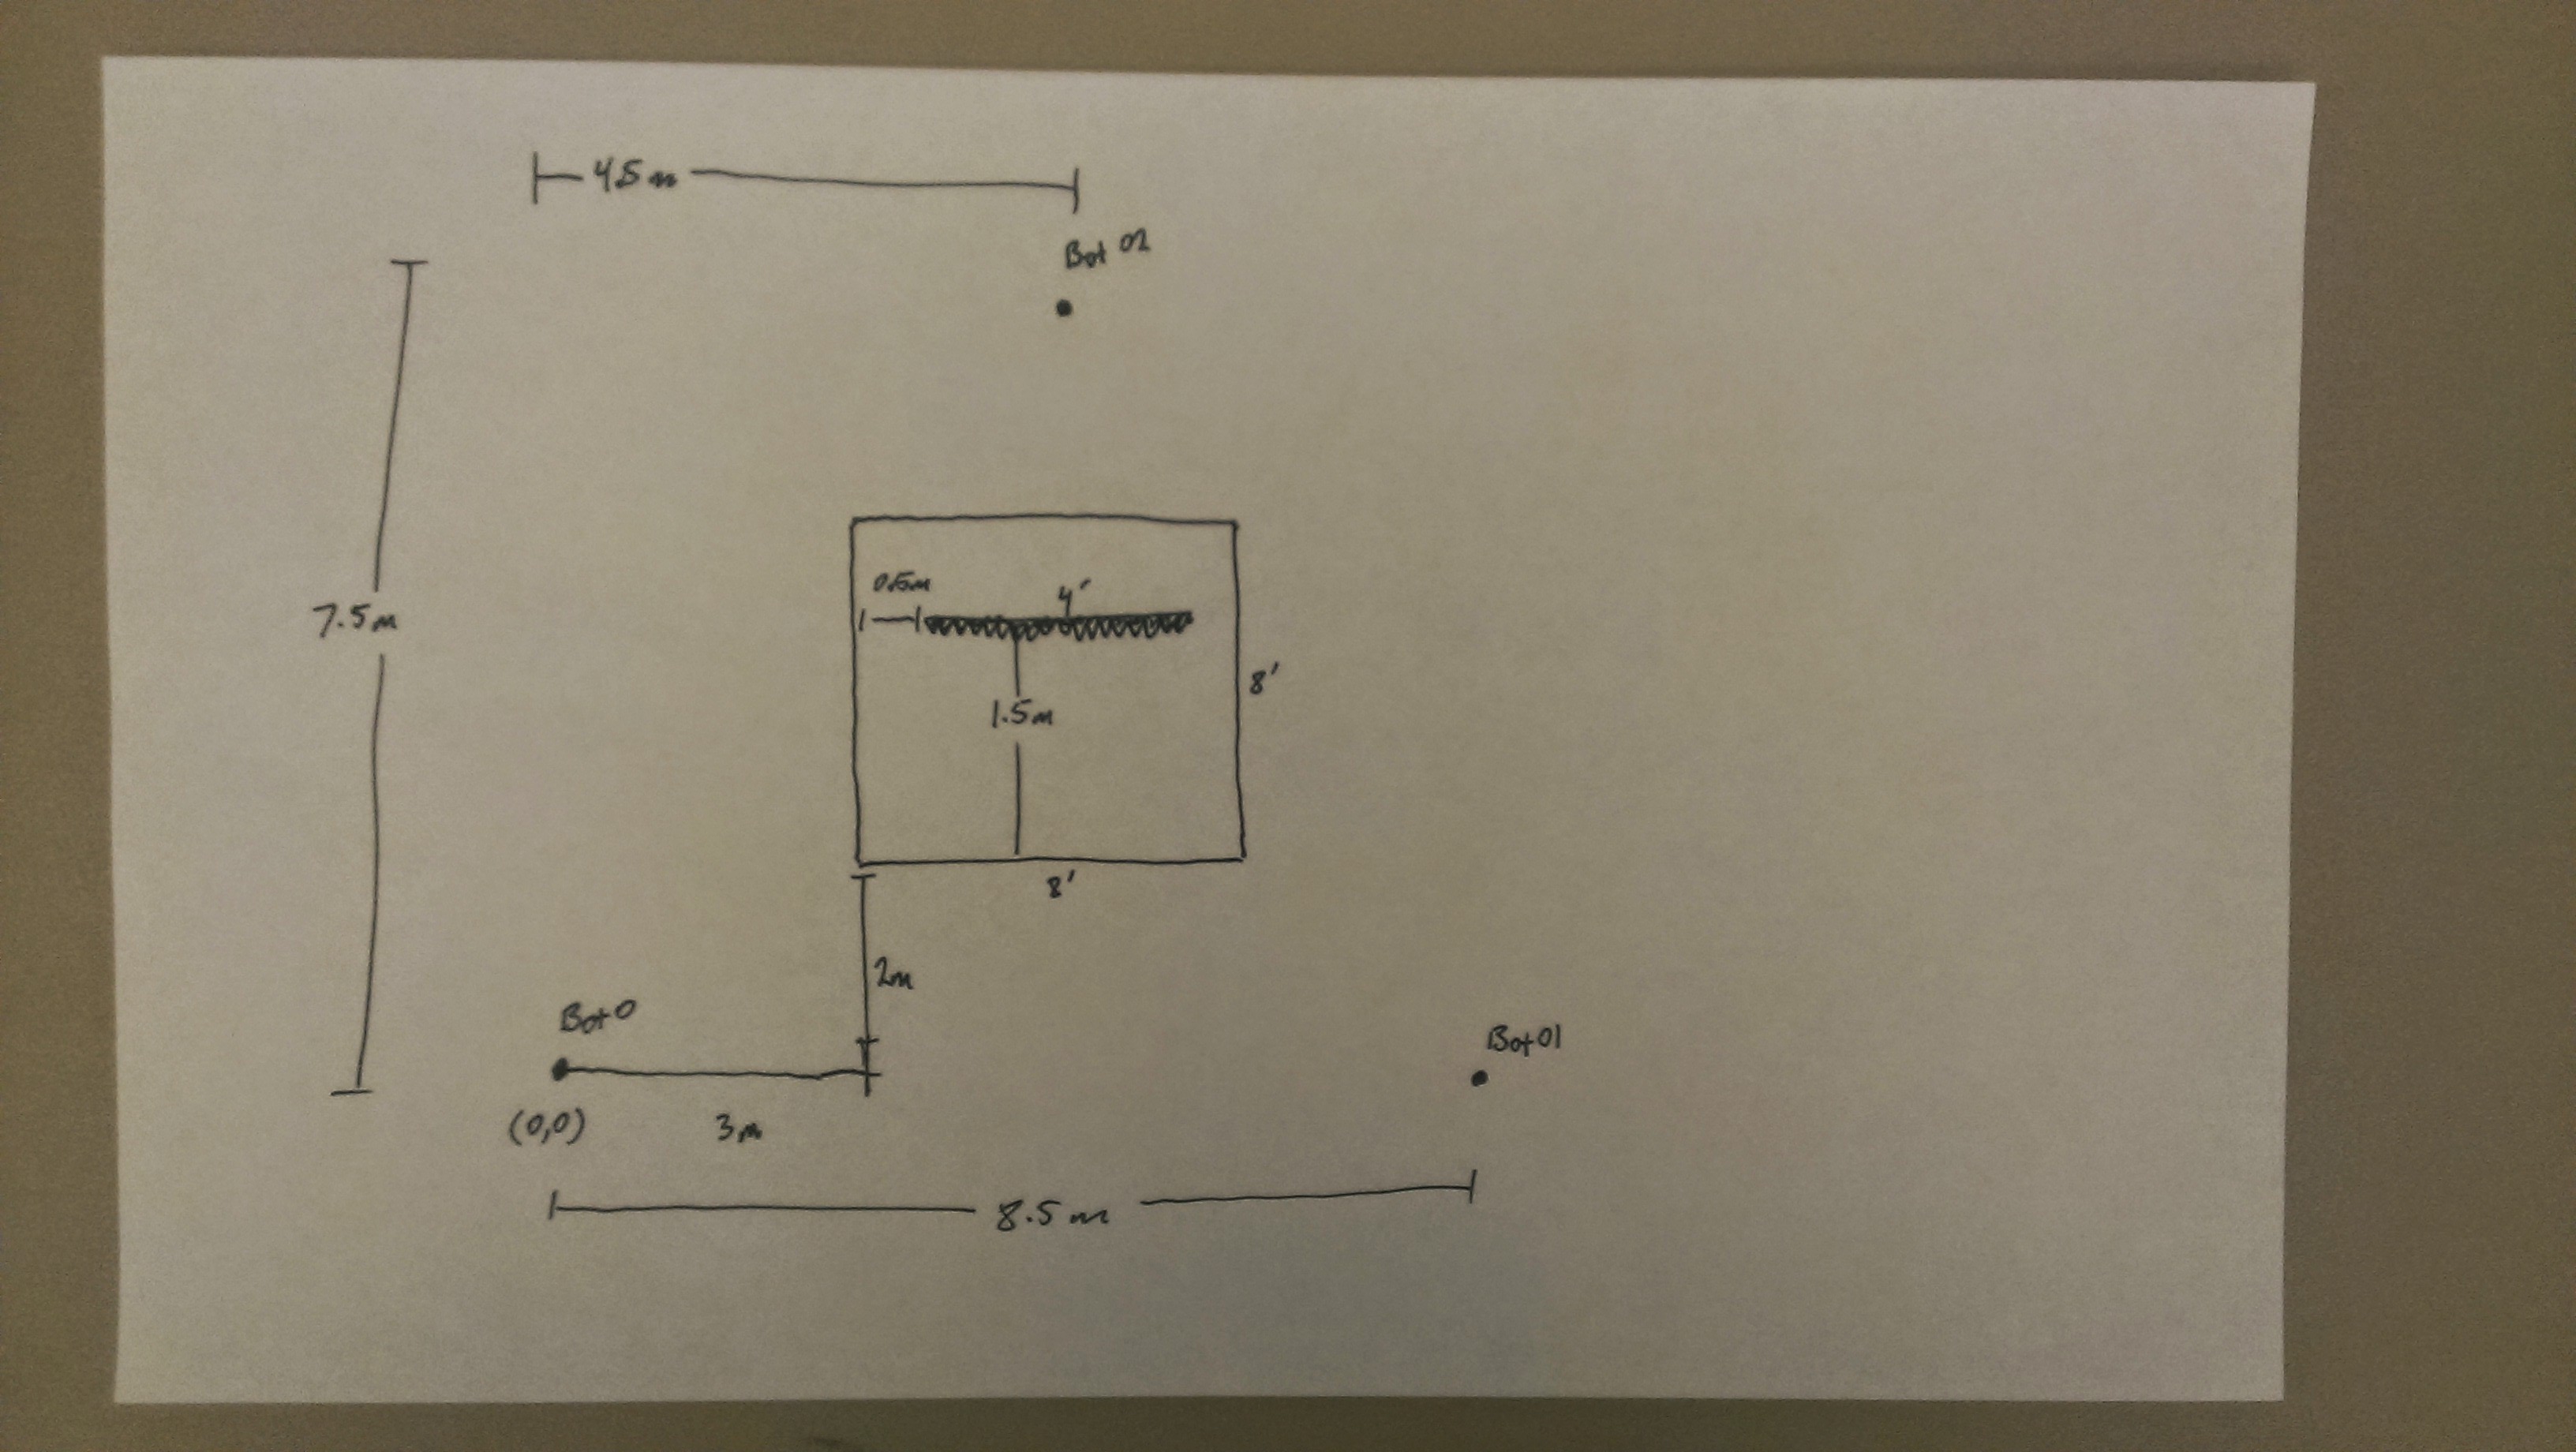 4.5m
Bot 02
0.5m
4'
7.5m
8'
1.5m
8'
2m
Bot 0
Bot 01
(0,0)
3m
8.5m